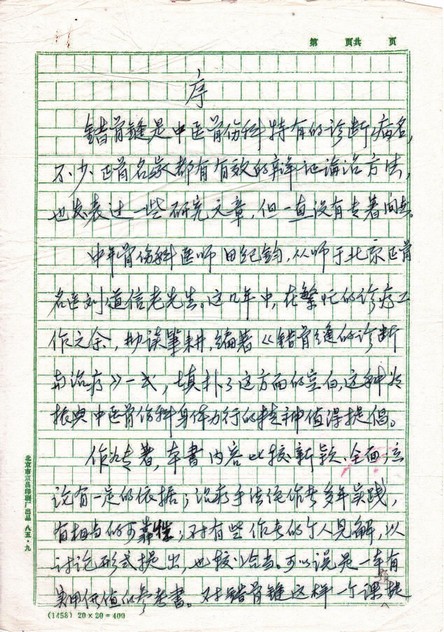 第 页共 页
序
错骨缝是中医骨伤科特有的诊断病名,
不少正骨名家都有有效的辩证论治方法,
也发表过一些研究文章,但一直没有专著问世。
中年骨伤科医师田纪钧,从师于北京正骨
名医刘道信老先生。这几年中,在繁忙的诊疗工
作之余,勤读笔耕,编著《错骨缝的诊断
与治疗》一书,填补了这方面的空白,这种为
振兴中医骨伤科身体力行的精神值得提倡。
作为专著,本书内容比较新颖、全面,立
论有一定的依据;治疗手法经作者多年实践,
有相当的可靠性;对有些作者的个人见解,以
讨论形式提出,也较合适。可以说是一本有
实用价值的参考书。对错骨缝这样一个课题
(1458) 20×20=400
北京市京昌印刷厂出品 八五·9